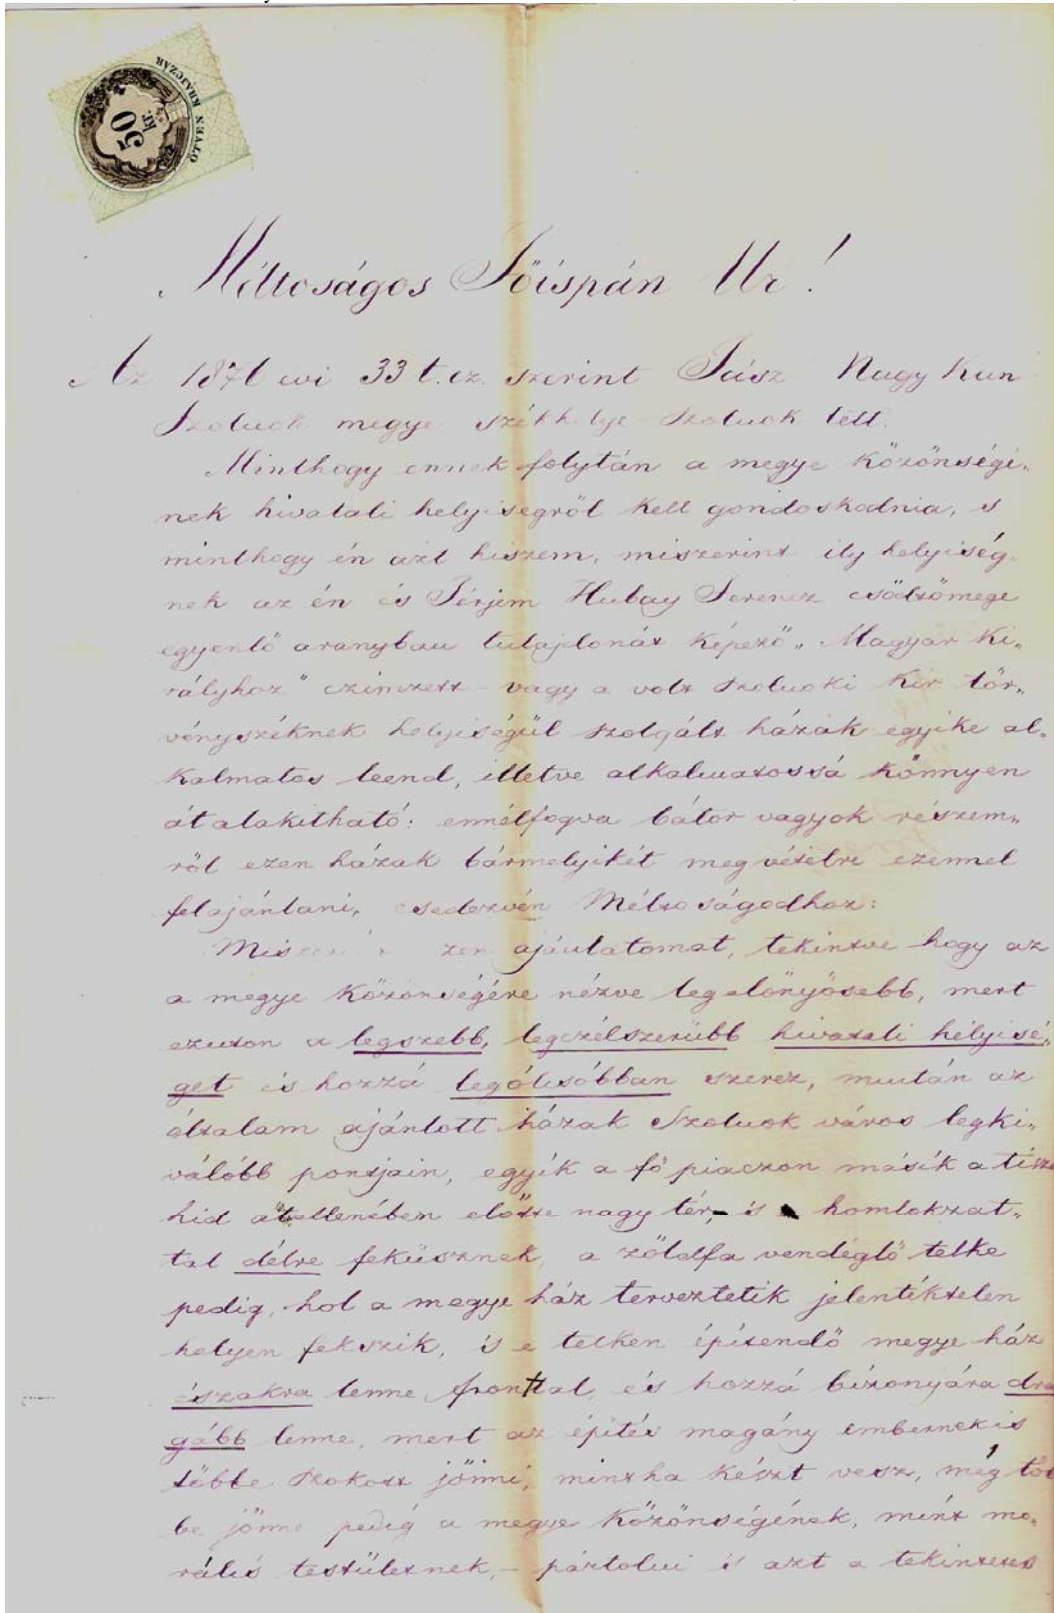 50
kr.
ÖTVEN KRAJCZÁR
Méltoságos Föispán Ur!
Az 1876 evi 33 t. cz. szerint Jász Nagy Kun
Szolnok megye székhelye Szolnok lett.
Minthogy ennek folytán a megye közönségé-
nek hivatali helyiségröl kell gondoskodnia, s
minthogy én azt hiszem, miszerint ily helyiség-
nek az én és Férjem Hubay Ferencz csödtömege
egyenlö aranyban tulajdonát képezö „Magyar Ki-
rályhoz" czimzett - vagy a volt Szolnoki Kir. tör-
vényszéknek helyiségül szolgált házak egyike al-
kalmatos leend, illetve alkalmatossá könnyen
átalakitható: ennélfogva bátor vagyok részem-
röl ezen házak bármelyikét megvételre ezennel
felajánlani, esedezvén Méltoságodhoz:
ajánlatomat, tekintve hogy az
a megye közönségére nézve legelönyösebb, mert
ezuton a legszebb, legczélszerübb hivatali hélyisé-
get és hozzá lególcsóbban szerez, miután az
általam ajánlott házak Szolnok város legki-
válóbb pontjain, egyik a fö piaczon másik a tisza
hid átellenében elötte nagy tér, - és homlokzat-
tal délre feküsznek, a zöldfa vendéglö telke
pedig, hol a megye ház terveztetik jelentéktelen
helyen fekszik, is e telken épitendö megye ház
északra lenne fronttal, és hozzá bizonyára drá
gább lenne, mert az épités magány embernek is
többe szokott jönni, mintha készt vesz, még töb
be jönne pedig a megye közönségének, mint mo-
rális testületnek, - pártolni is azt a tekintetes